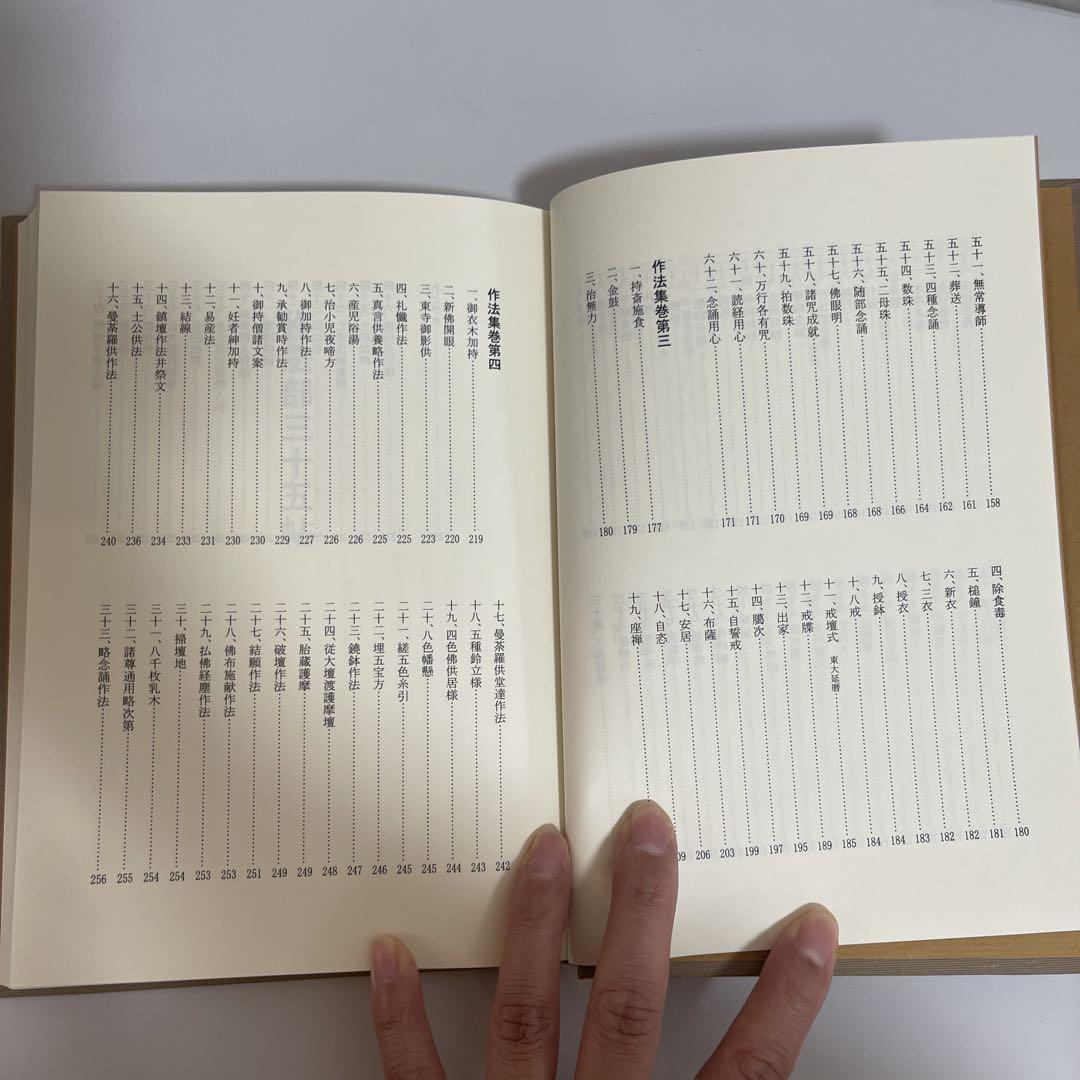 五十一、無常導師……158
五十二、葬送……161
五十三、四種念誦……162
五十四、数珠……164
五十五、二母珠……166
五十六、随部念誦……168
五十七、佛眼明……168
五十八、諸咒成就……169
五十九、拍数珠……169
六十、万行各有咒……170
六十一、読経用心……171
六十二、念誦用心……171
作法集巻第三
一、持斎施食……177
二、金鼓……179
三、治無力……180
四、除食毒……180
五、槌鐘……181
六、新衣……182
七、三衣……182
八、授衣……183
九、授鉢……184
十、八戒……184
十一、戒壇式 東大延暦……185
十二、戒牒……189
十三、出家……195
十四、臈次……197
十五、自誓戒……199
十六、布薩……203
十七、安居……206
十八、自恣……209
十九、座禅……
作法集巻第四
一、御衣木加持……219
二、新佛開眼……220
三、東寺御影供……223
四、礼懺作法……225
五、真言供養略作法……225
六、産児浴湯……226
七、治小児夜啼方……226
八、御加持作法……227
九、承勧賞時作法……229
十、御持僧諸文案……230
十一、妊者神加持……230
十二、易産法……231
十三、結線……233
十四、鎮壇作法并祭文……234
十五、土公供法……236
十六、曼荼羅供作法……240
十七、曼荼羅供堂達作法……242
十八、五種鈴立様……243
十九、四色佛供居様……244
二十、八色幡懸……245
二十一、縒五色糸引……245
二十二、埋五宝方……246
二十三、鐃鉢作法……247
二十四、従大壇渡護摩壇……248
二十五、胎蔵護摩……249
二十六、破壇作法……249
二十七、結願作法……251
二十八、佛布施献作法……253
二十九、払佛経塵作法……253
三十、掃壇地……254
三十一、八千枚乳木……254
三十二、諸尊通用略次第……255
三十三、略念誦作法……256